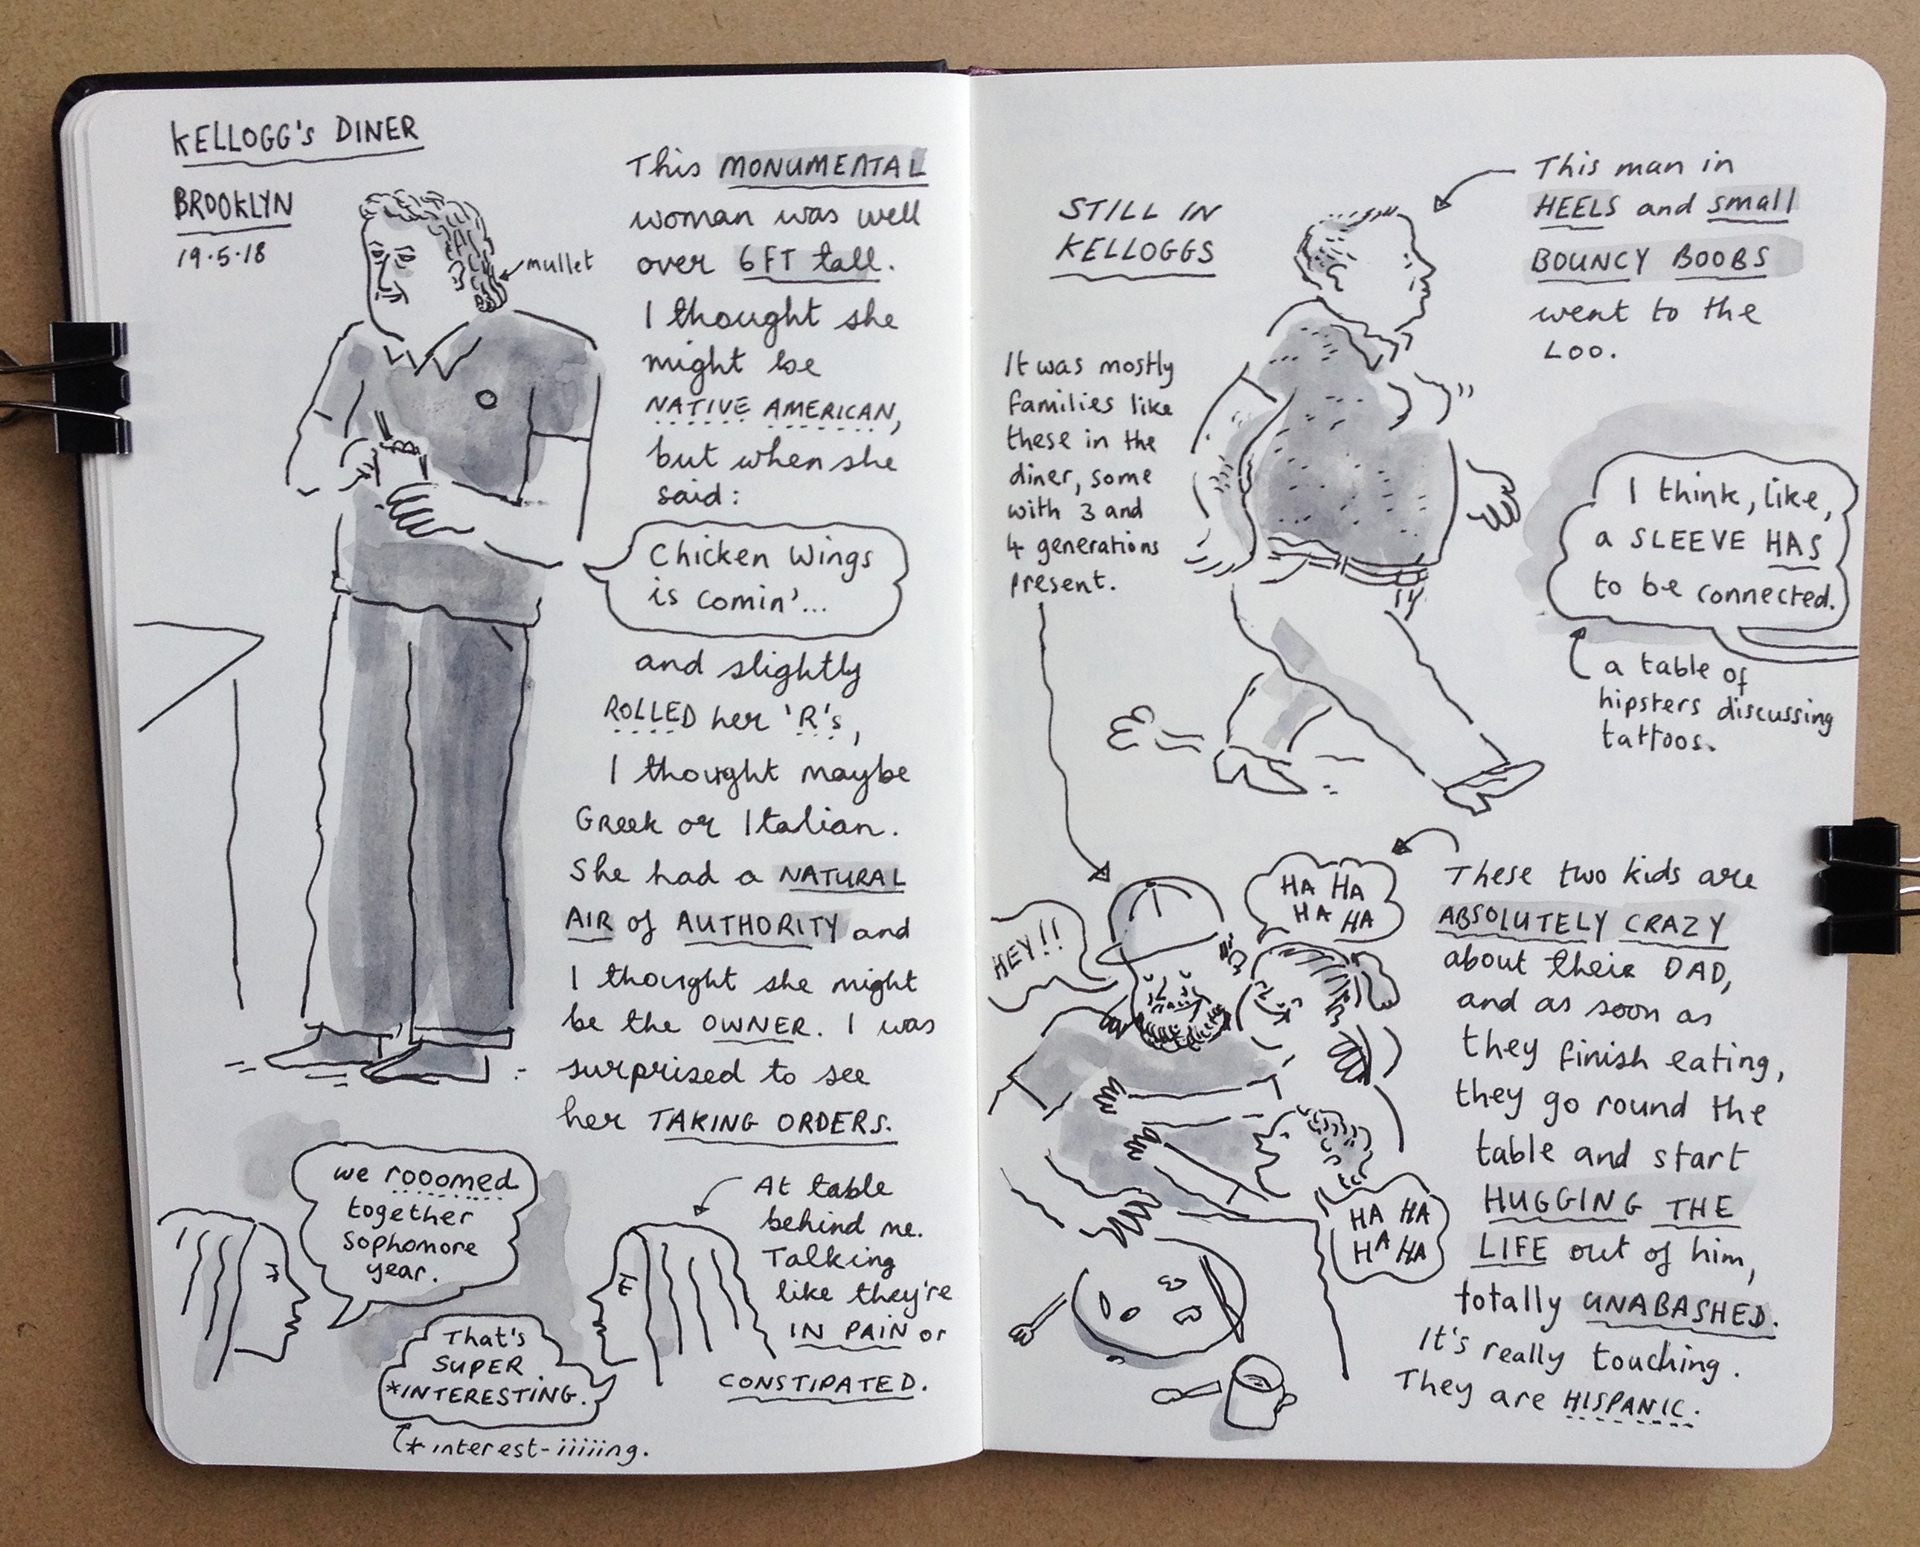 KELLOGG'S DINER
BROOKLYN
19.5.18
mullet
This MONUMENTAL
woman was well
over 6FT tall.
I thought she
might be
NATIVE AMERICAN,
but when she
said:
Chicken Wings
is comin'...
and slightly
ROLLED her 'R's,
I thought maybe
Greek or Italian.
She had a NATURAL
AIR of AUTHORITY and
I thought she might
be the OWNER. I was
surprised to see
her TAKING ORDERS.
we rooomed
together
sophomore
year.
That's
SUPER
*INTERESTING.
* interest-iiiiiing.
At table
behind me.
Talking
like they're
IN PAIN or
CONSTIPATED.
STILL IN
KELLOGGS
This man in
HEELS and small
BOUNCY BOOBS
went to the
LOO.
It was mostly
families like
these in the
diner, some
with 3 and
4 generations
present.
I think, like,
a SLEEVE HAS
to be connected.
a table of
hipsters discussing
tattoos.
HEY!!
HA HA
HA HA
These two kids are
ABSOLUTELY CRAZY
about their DAD,
and as soon as
they finish eating,
they go round the
table and start
HUGGING THE
LIFE out of him,
totally UNABASHED.
It's really touching.
They are HISPANIC.
HA HA
HA HA